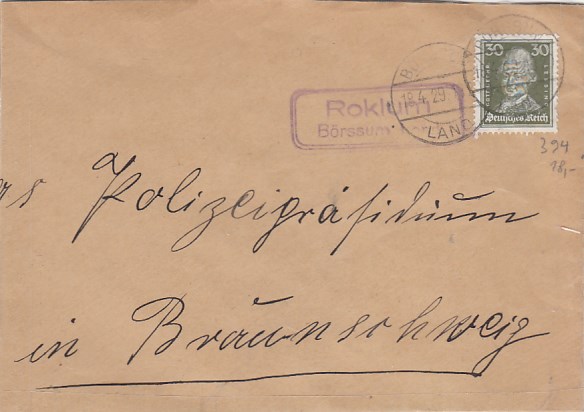 30 30
Deutsches Reich
Roklum
Börssum
18.4.29
LAND
394
18,-
as Polizeipräsidium
in Braunschweig